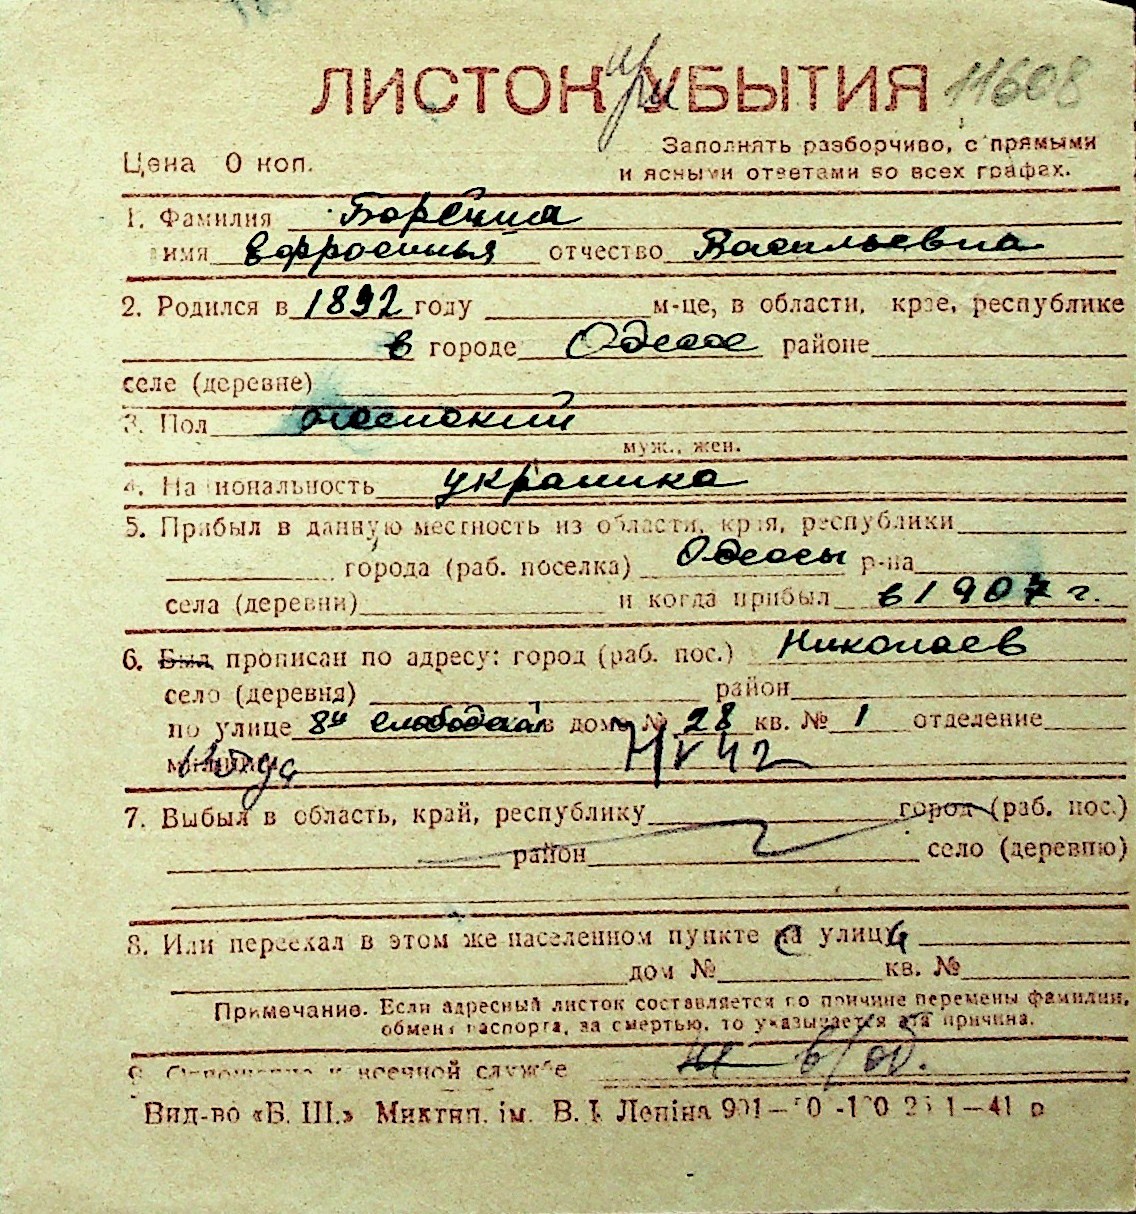 ЛИСТОК при УБЫТИЯ 11608
Цена 0 коп.
Заполнять разборчиво, с прямыми
и ясными ответами во всех графах.
1. Фамилия
имя Ефросинья отчество Васильевна
2. Родился в 1892 году м-це, в области, крае, республике
в городе Одессе районе
селе (деревне)
3. Пол женский
муж., жен.
4. Национальность украинка
5. Прибыл в данную местность из области, края, республики
города (раб. поселка) Одессы р-на
села (деревни) и когда прибыл в 1907 г.
6. Был прописан по адресу: город (раб. пос.) Николаев
село (деревня) район
по улице 8я Слободская в доме № 28 кв. № 1 отделение
милиции
7. Выбыл в область, край, республику город (раб. пос.)
район село (деревню)
8. Или переехал в этом же населенном пункте с улицы
дом № кв. №
Примечание. Если адресный листок составляется по причине перемены фамилии,
обмена паспорта, за смертью, то указывается эта причина.
9. Отношение к военной службе н в/об.
Вид-во «Б. Ш.» Миктип. ім. В. І. Леніна